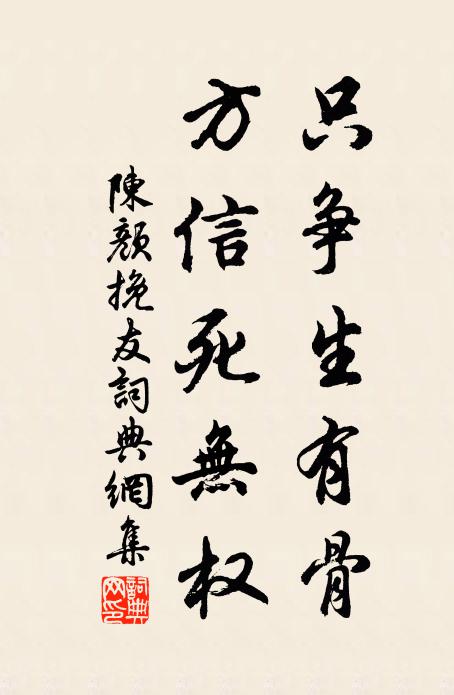 只争生有骨
方信死無权
陳顏挽友詞典網集
詞典网印